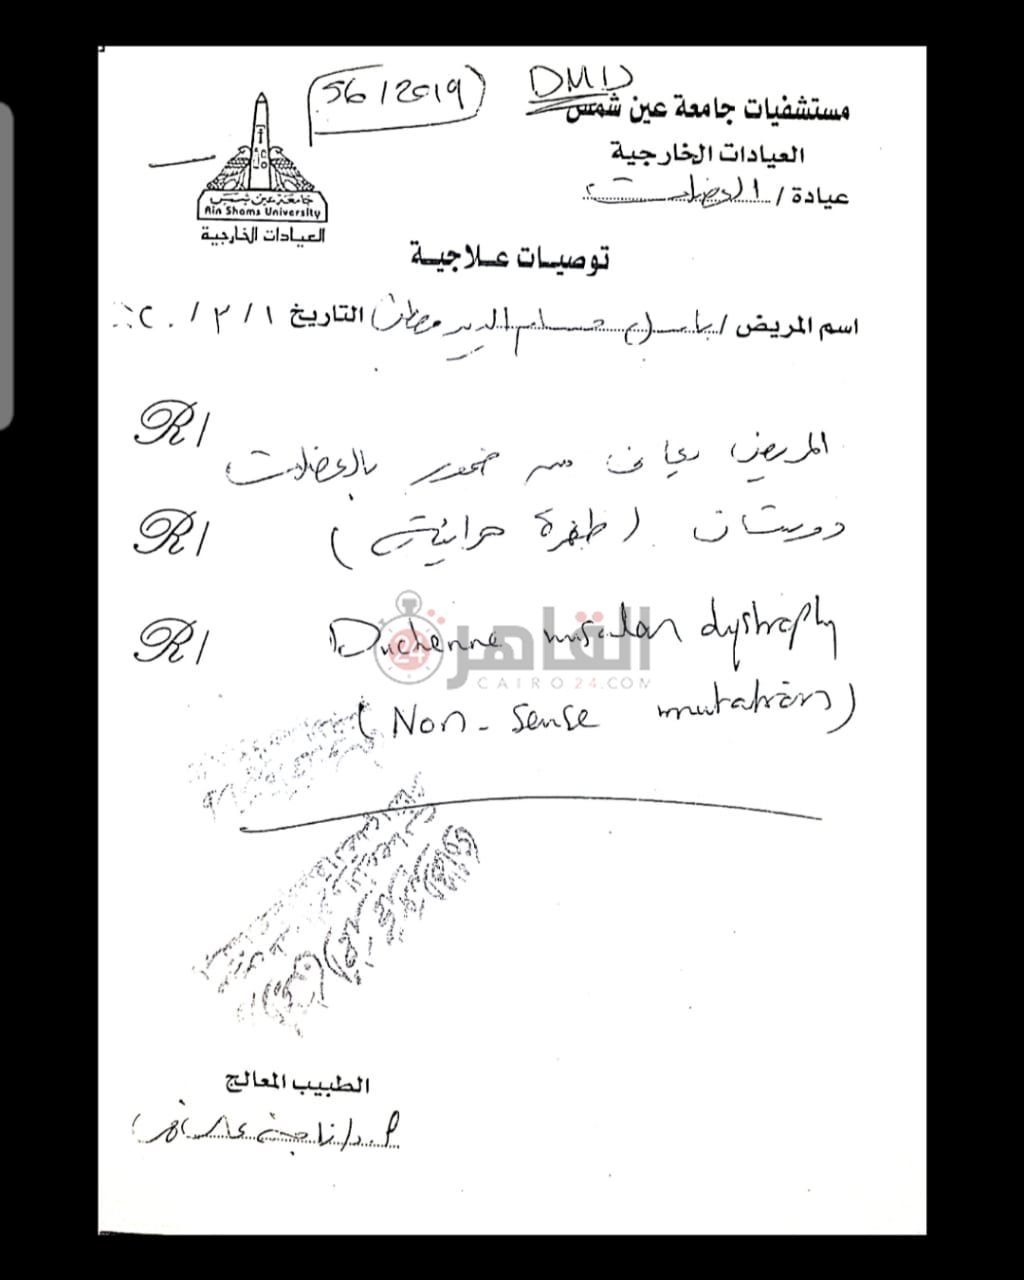 56/2019
DMD
مستشفيات جامعة عين شمس
العيادات الخارجية
عيادة / العضلات
جامعة عين شمس
Ain Shams University
العيادات الخارجية
توصيات علاجية
اسم المريض / باسل حسام الدين مصطفى التاريخ ١ / ٣ /
R/ المريض يعانى من ضمور بالعضلات
R/ دوشان (طفرة جينية)
R/ Duchenne muscular dystrophy
(Non-sense mutation)
القاهرة 24
CAIRO24.COM
الطبيب المعالج
أ.د/ ناجية